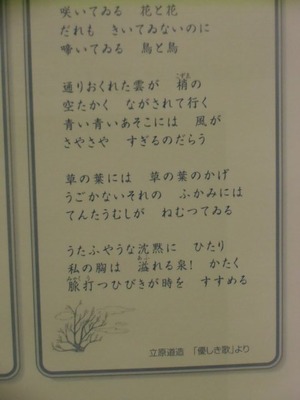 咲いてゐる　花と花
だれも　きいてゐないのに
啼いてゐる　鳥と鳥
通りおくれた雲が　梢の
空たかく　ながされて行く
青い青いあそこには　風が
さやさや　すぎるのだらう
草の葉には　草の葉のかげ
うごかないそれの　ふかみには
てんたうむしが　ねむつてゐる
うたふやうな沈黙に　ひたり
私の胸は　溢れる泉！　かたく
脈打つひびきが時を　すすめる
立原道造　「優しき歌」より